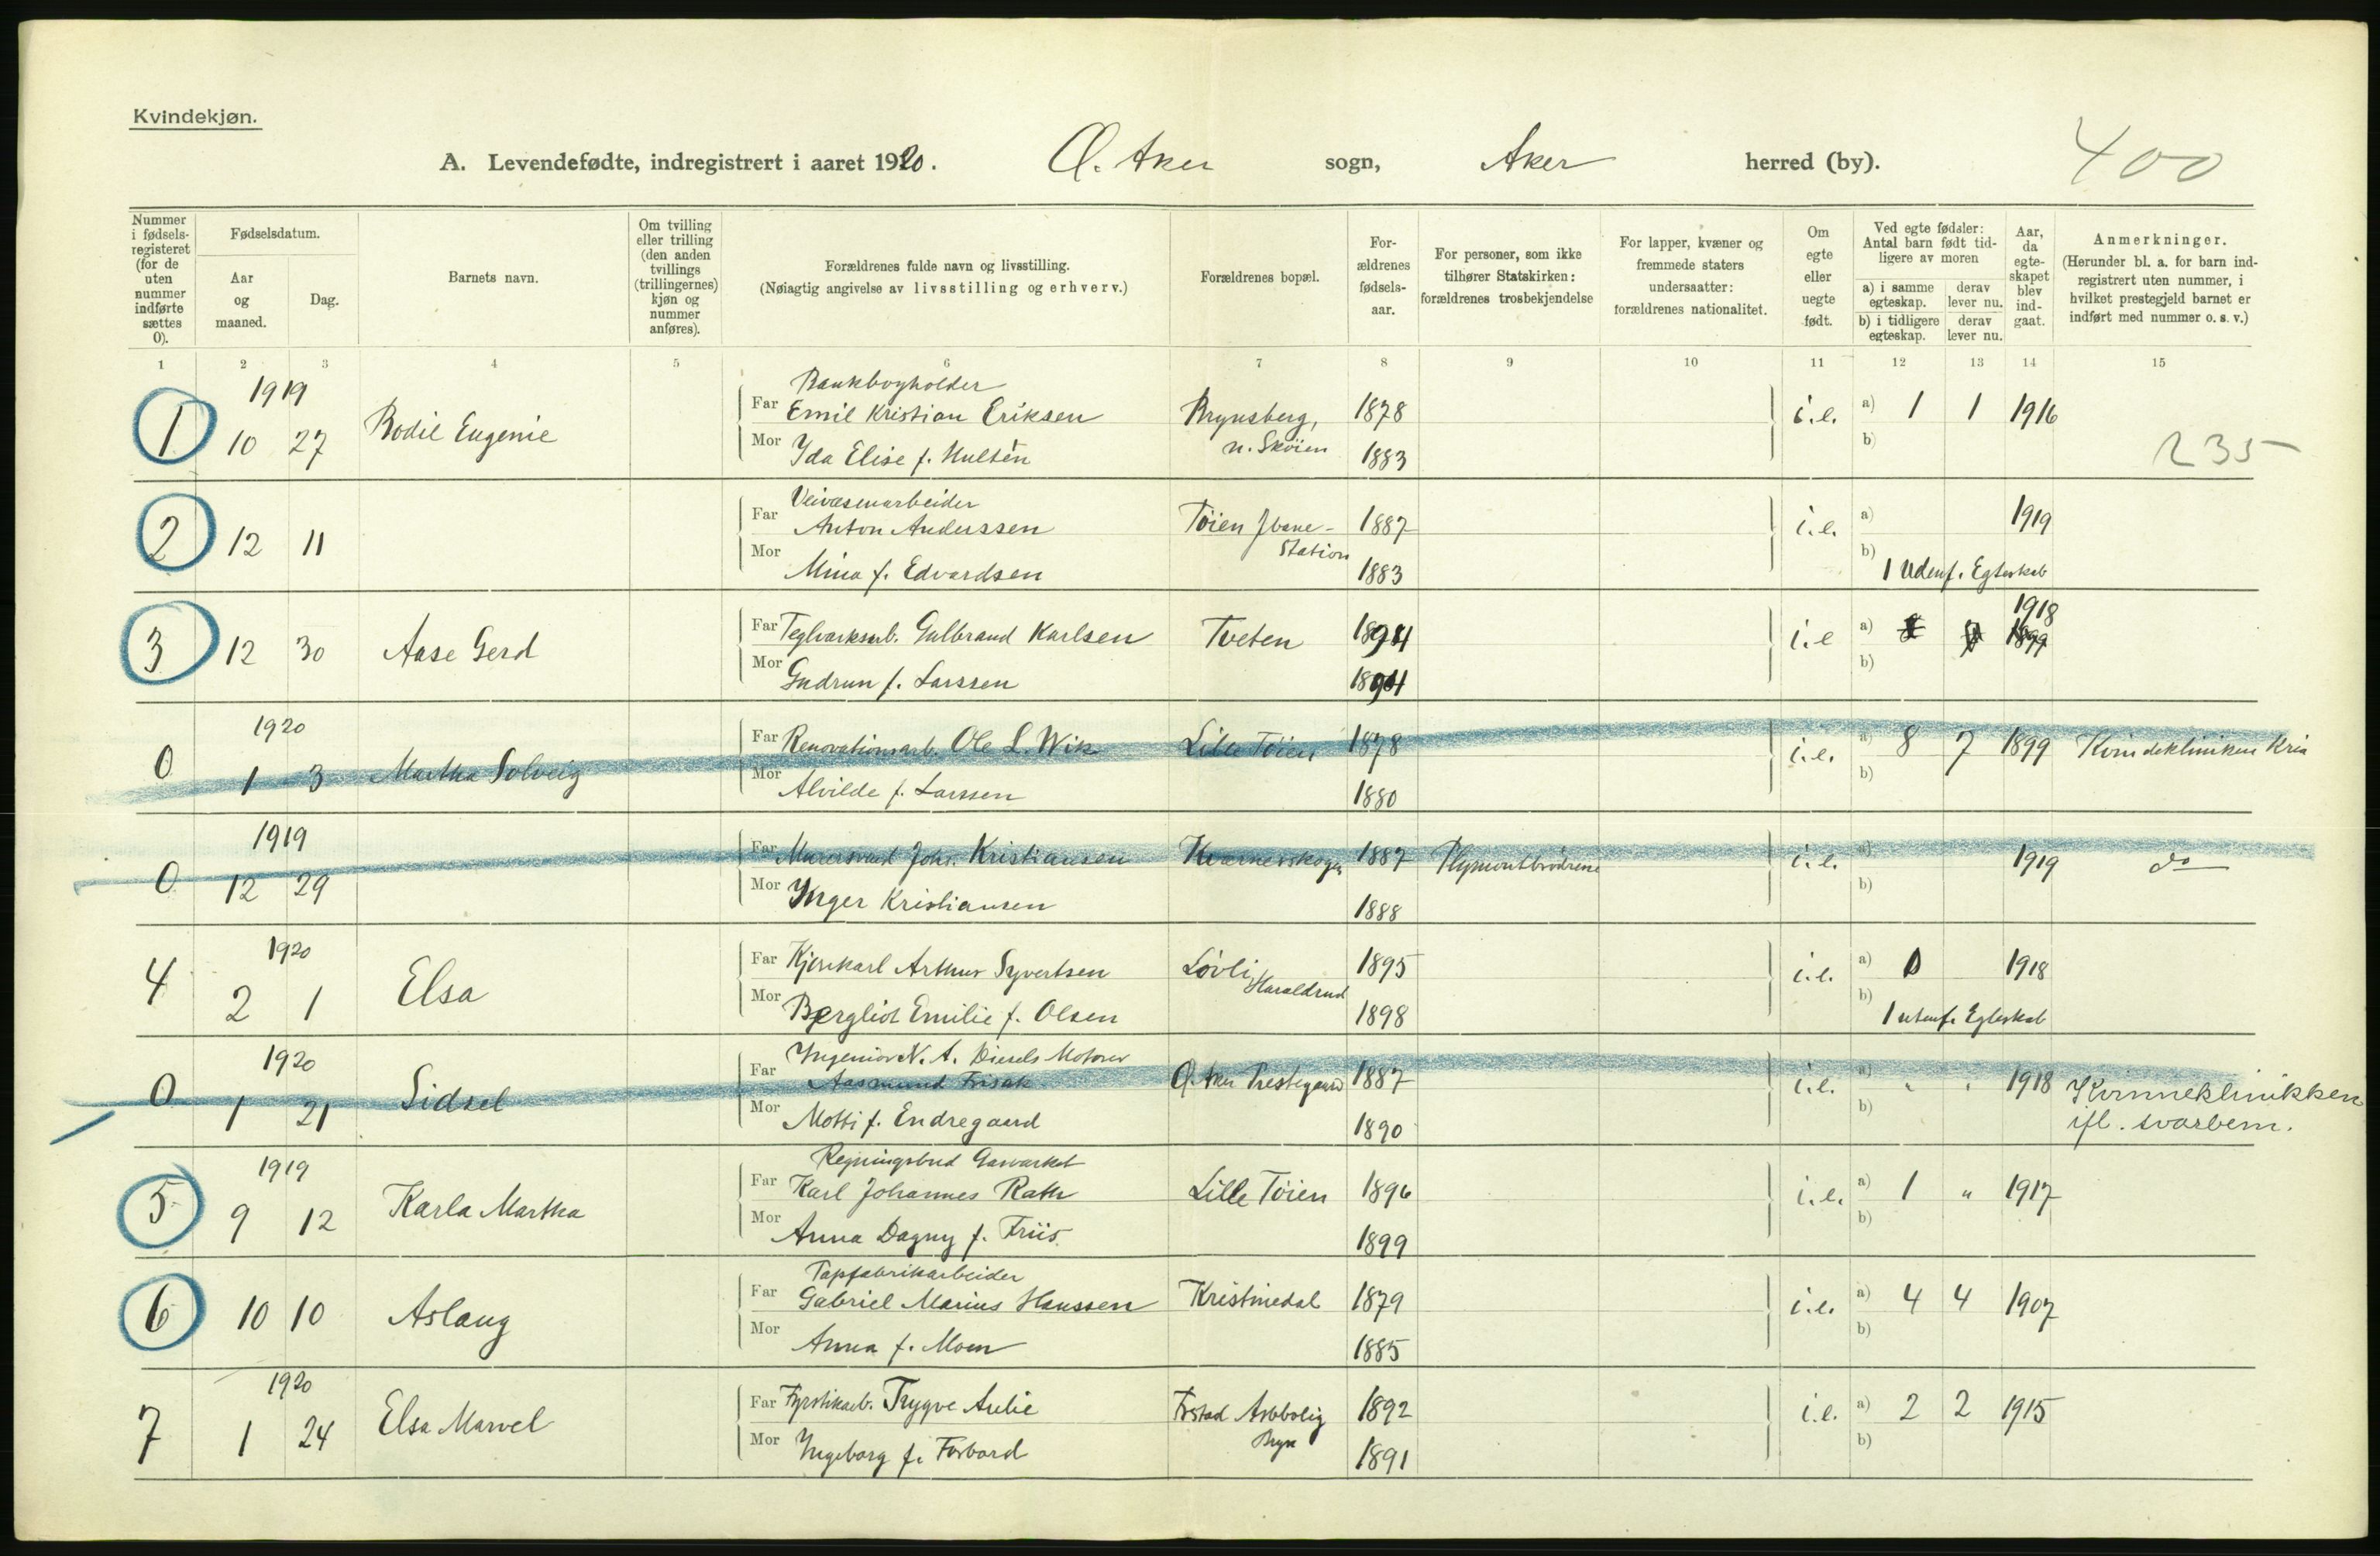 Kvindekjøn.
A. Levendefødte, indregistrert i aaret 1920. Ø. Aker sogn, Aker herred (by). 400
Nummer i fødsels-registeret (for de uten nummer indførte sættes 0).
Fødselsdatum.
Aar og maaned.
Dag.
Barnets navn.
Om tvilling eller trilling (den anden tvillings (trillingernes) kjøn og nummer anføres).
Forældrenes fulde navn og livsstilling.
(Nøiagtig angivelse av livsstilling og erhverv.)
Forældrenes bopæl.
For-ældrenes fødsels-aar.
For personer, som ikke tilhører Statskirken: forældrenes trosbekjendelse
For lapper, kvæner og fremmede staters undersaatter: forældrenes nationalitet.
Om egte eller uegte født.
Ved egte fødsler: Antal barn født tid-ligere av moren
a) i samme egteskap.
derav lever nu.
b) i tidligere egteskap.
derav lever nu.
Aar, da egte-skapet blev ind-gaat.
Anmerkninger.
(Herunder bl. a. for barn ind-registrert uten nummer, i hvilket prestegjeld barnet er indført med nummer o. s. v.)
1 2 3 4 5 6 7 8 9 10 11 12 13 14 15
1919 Bankbogholder
1 10 27 Bodil Eugenie Far Emil Kristian Eriksen Brynsberg, 1878 i.e. a) 1 1 1916
Mor Ida Elise f. Hultén n. Skøien 1883 b) 235
Veivæsenarbeider
2 12 11 Far Anton Anderssen Tøien Jbane- 1887 i.e. a) 1919
Station
Mor Mina f. Edvardsen 1883 b) 1 Udenf. Egteskab
1918
3 12 30 Aase Gerd Far Teglverksarb. Gulbrand Karlsen Tveten 1894 i.e a) 1899
Mor Gudrun f. Larssen 1894 b)
1920
0 1 3 Martha Solveig Far Renovationsarb. Ole L. Wik Lille Tøien 1878 i.e. a) 8 7 1899 Kvindekliniken Kria
Mor Alvilde f. Larssen 1880 b)
1919
0 12 29 Far Murersvend Johs. Kristiansen Kværnerskogen 1887 Plymouthbrødrene i.e. a) 1919 do
Mor Inger Kristiansen 1888 b)
1920
4 2 1 Elsa Far Kjørekarl Arthur Syvertsen Løvli 1895 i.e. a) 0 1918
Haraldrud
Mor Bergliot Emilie f. Olsen 1898 b) 1 utenf. Egteskab
1920 Ingeniør N. A. Diesels Motorer
0 1 21 Sidsel Far Aasmund Frisak Ø. Aker Prestegaard 1887 i.e. a) " " 1918 Kvinneklinikken
Mor Motti f. Endregaard 1890 b) ifl. svarbem.
1919 Regningsbud Gasverket
5 9 12 Karla Martha Far Karl Johannes Rath Lille Tøien 1896 i.e. a) 1 " 1917
Mor Anna Dagny f. Friis 1899 b)
Tapfabrikarbeider
6 10 10 Aslaug Far Gabriel Marius Hanssen Kristinedal 1879 i.e. a) 4 4 1907
Mor Anna f. Moen 1885 b)
1920
7 1 24 Elsa Marvel Far Fyrstikarb. Trygve Aulie Arbbolig 1892 i.e. a) 2 2 1915
Bryn
Mor Ingeborg f. Forbord 1891 b)